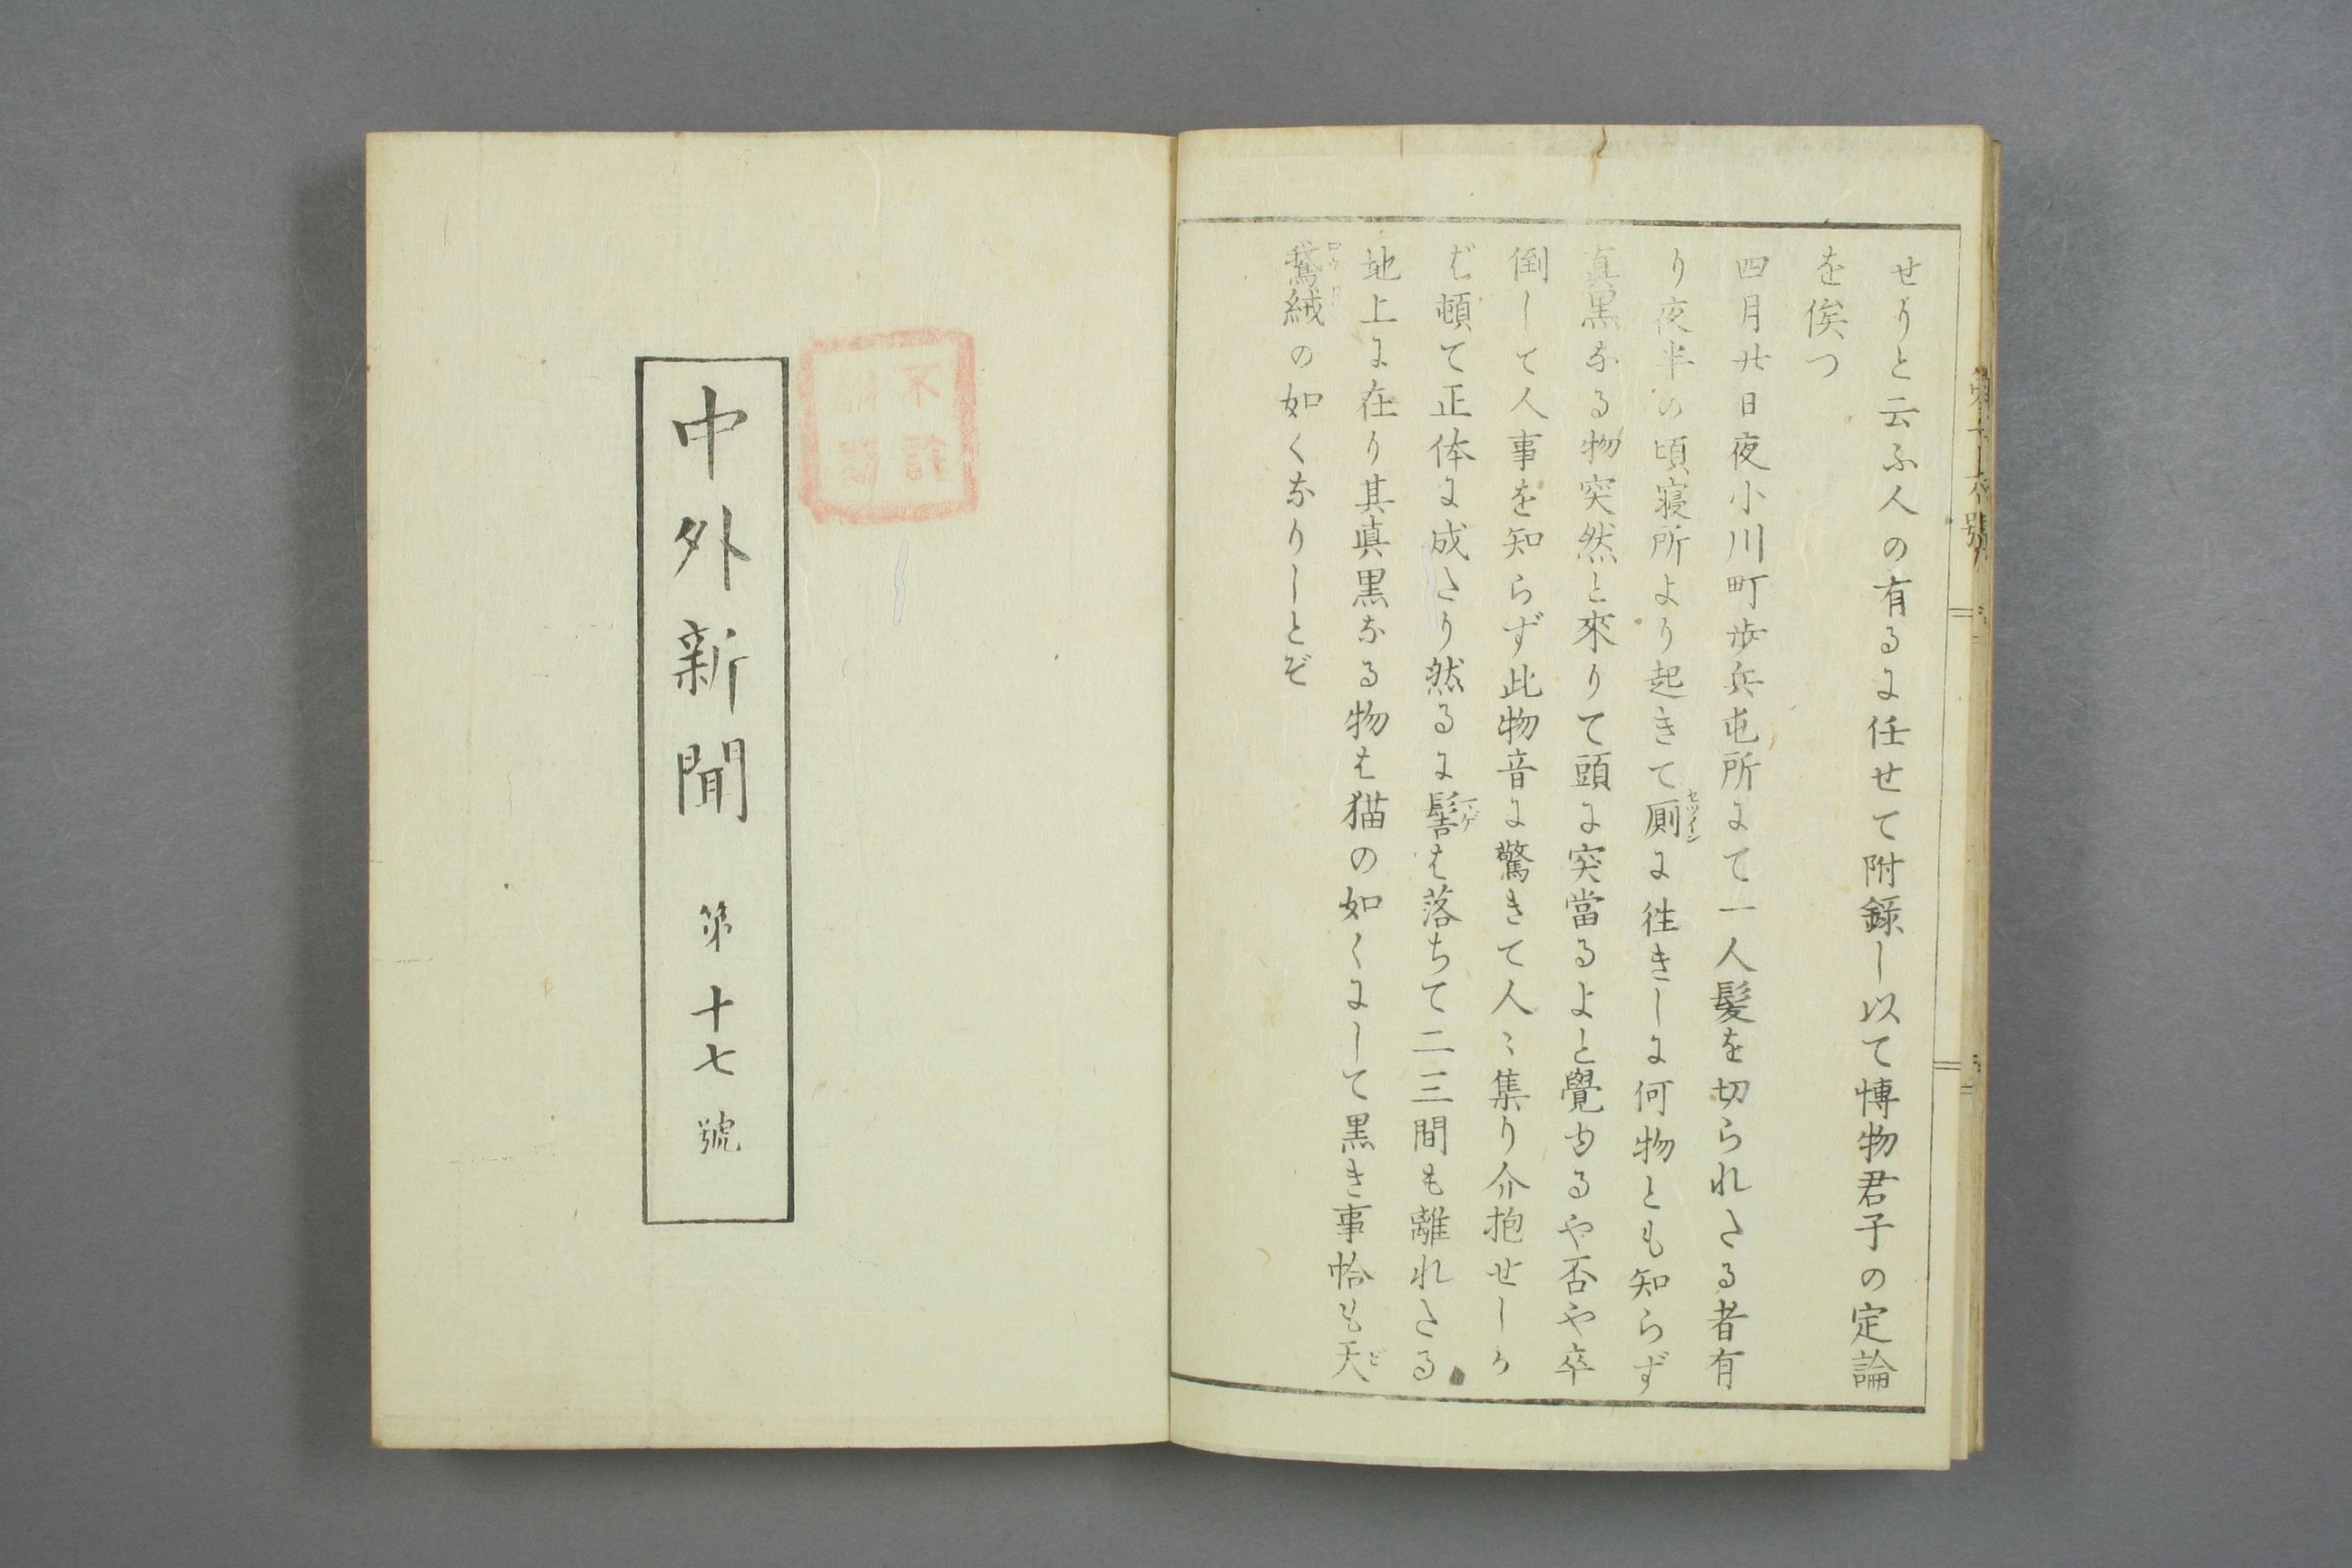 せりと云ふ人の有るに任せて附録し以て博物君子の定論
を俟つ
四月廿日夜小川町歩兵屯所にて一人髪を切られたる者有
り夜半の頃寝所より起きて厠に徃きしに何物とも知らず
セツイン
真黒なる物突然と來りて頭に突當るよと覺ゆるや否や卒
倒して人事を知らず此物音に驚きて人〻集り介抱せしか
ば頓て正体に成たり然るに髻は落ちて二三間も離れたる
マゲ
地上に在り其真黒なる物は猫の如くにして黒き事恰も天
鵞絨の如くなりしとぞ
第十六號
不許
中外新聞 第十七號